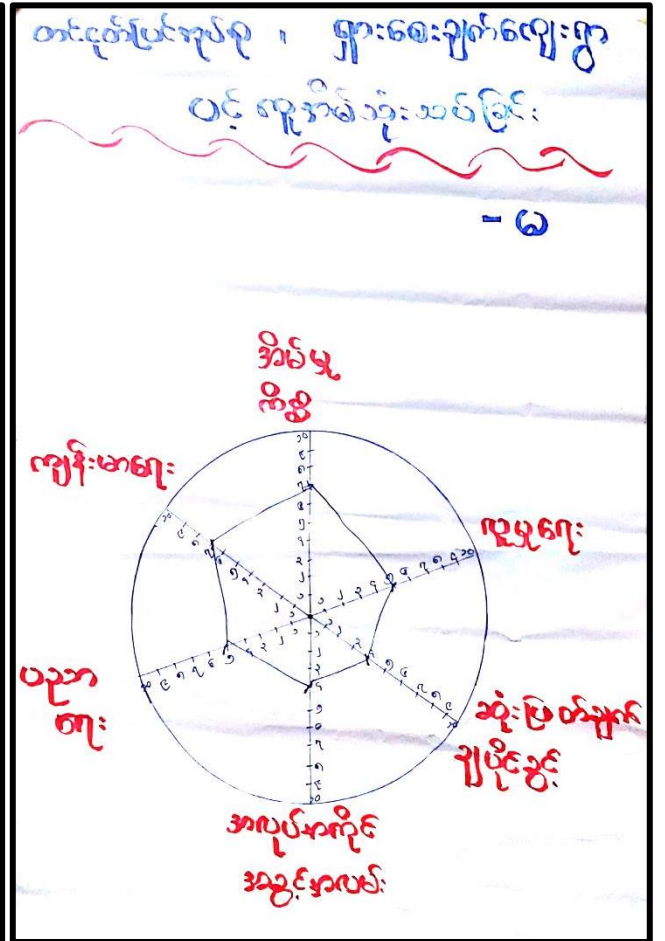 တင်းငုတ်ပြင်အုပ်စု ၊ ရှားစေးချက်ကျေးရွာ
ပင့်ကူအိမ်သုံးသပ်ခြင်း
- မ
အိမ်မှု
ကိစ္စ
ကျန်းမာရေး
လူမှုရေး
ပညာ
ရေး
ဆုံးဖြတ်ချက်
ချပိုင်ခွင့်
အလုပ်အကိုင်
အခွင့်အလမ်း